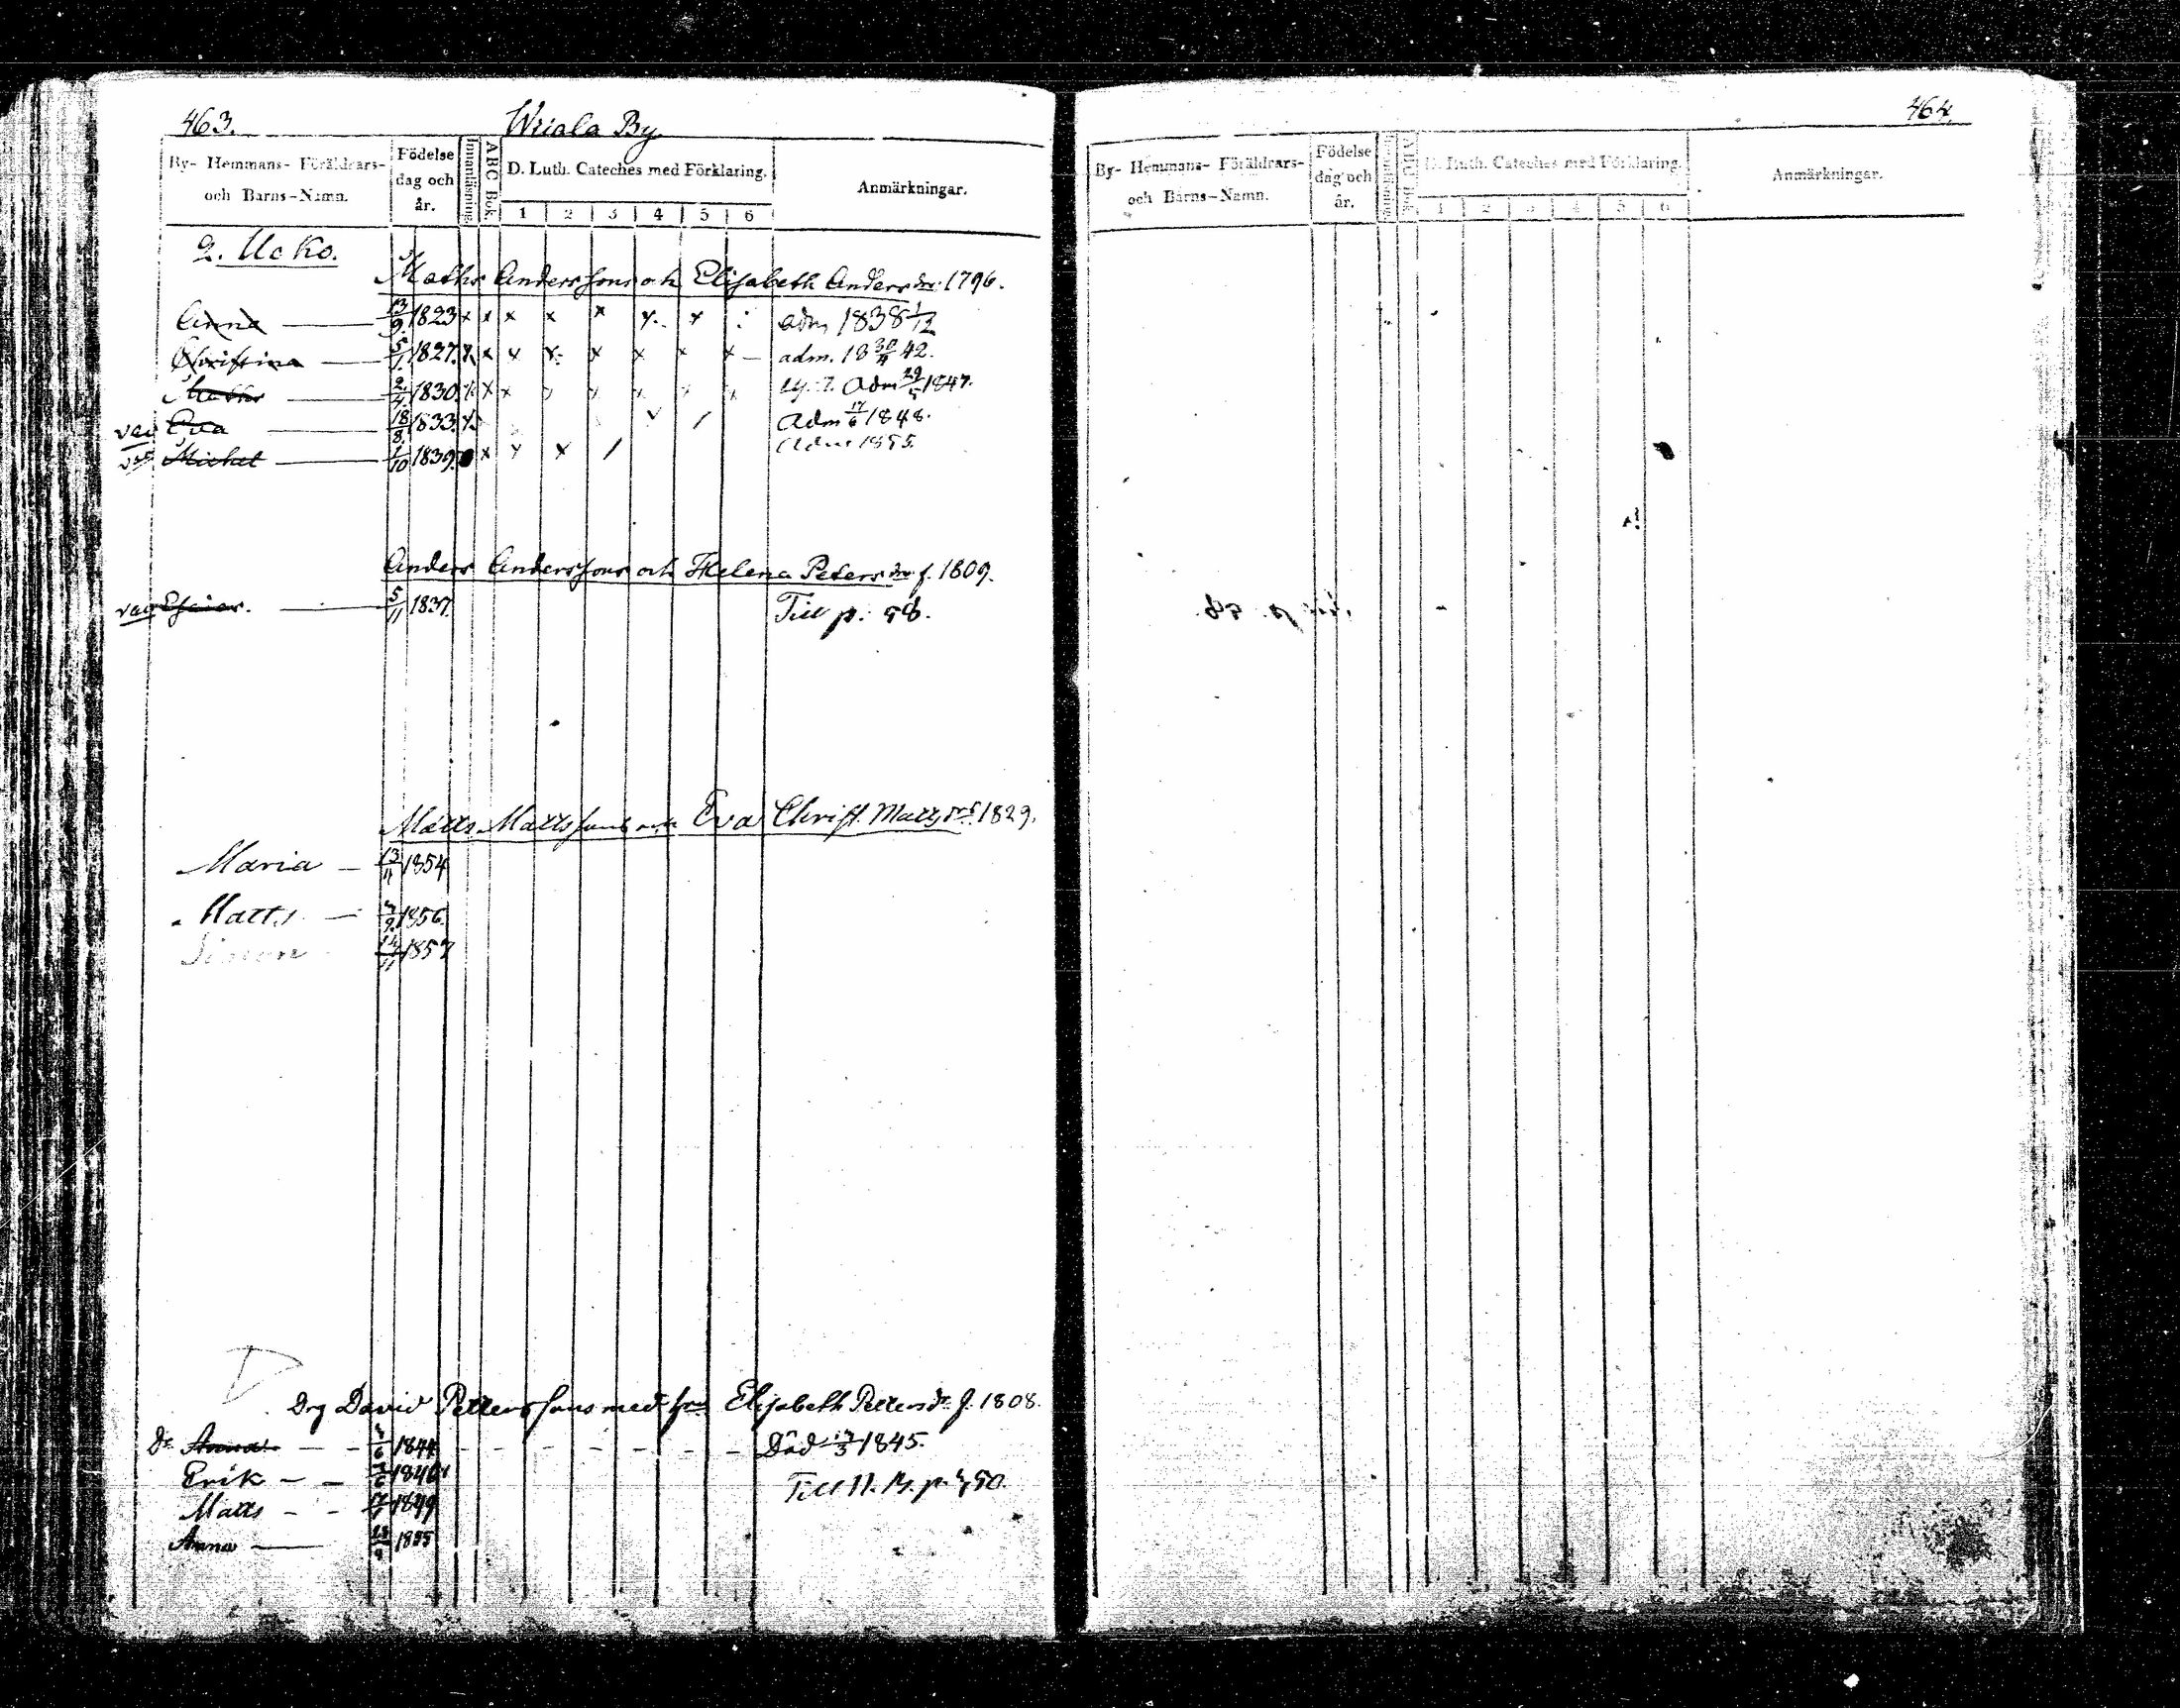 463.
Wriala By
By- Hemmans- Föräldrars- och Barns-Namn.
Födelse dag och år.
Innanläsning.
ABC Bok.
D. Luth. Cateches med Förklaring.
1 2 3 4 5 6
Anmärkningar.
2. Ucko.
Maths Anderssons och Elisabeth Andersdr 1796.
Anna 13/9 1823 x x x x x x x adm 1838 1/12
Christina 5/1 1827. x x x x x x x x adm. 18 30/4 42.
Maths 2/4 1830. x x x Adm 29/5 1847.
Eva 18/8 1833. x Adm 17/6 1848.
Michel 1/10 1839. x x x / Adm 1855.
Anders Anderssons och Helena Petersdr f. 1809.
Esaias. 5/11 1837. Till p. 58.
Matts Mattssons och Eva Christ. Mattsdr f. 1829.
Maria 13/11 1854
Matts 1856.
Simon 1857
Drg David Petterssons med hu Elisabeth Pettersdr f. 1808.
Anna 1844 Död 1845.
Erik 1846
Matts 1849
Anna 1855
464.
By- Hemmans- Föräldrars- och Barns-Namn.
Födelse dag och år.
Innanläsning.
ABC Bok.
D. Luth. Cateches med Förklaring.
1 2 3 4 5 6
Anmärkningar.